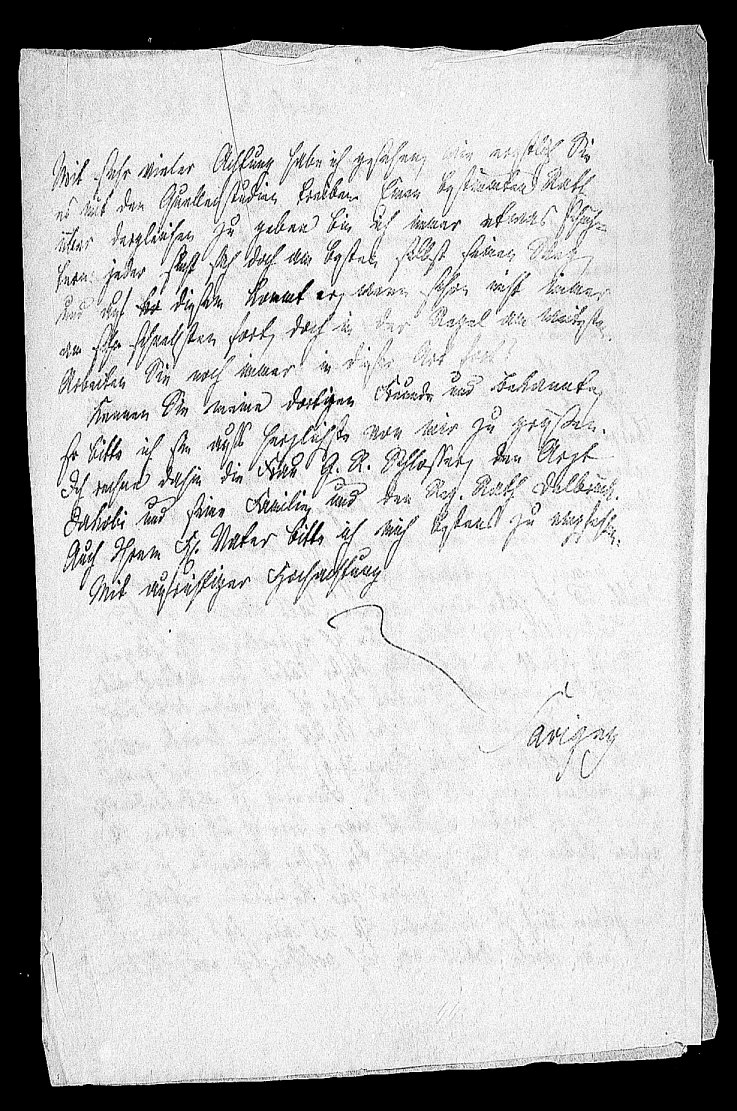 Mit sehr vieler Achtung habe ich gesehen, wie ernstlich Sie
es mit den Quellenstudien treiben. Einen bestimmten Rath
über dergleichen zu geben bin ich immer etwas schüch-
tern: jeder sucht sich doch am besten selbst seinen Weg,
und auf diesem kommt er, wenn schon nicht immer
am schnellsten fort, doch in der Regel am weitesten.
Arbeiten Sie noch immer in dieser Art fort.
Kennen Sie meine dortigen Freunde und Bekannte,
so bitte ich sie aufs herzlichste von mir zu grüßen.
Ich rechne dahin die Frau G. R. Schlosser, den Arzt
Jakobi und seine Familie, und den Reg. Rath Delbrück.
Auch Ihrem H. Vater bitte ich mich bestens zu empfehlen.
Mit aufrichtiger Hochachtung
Savigny